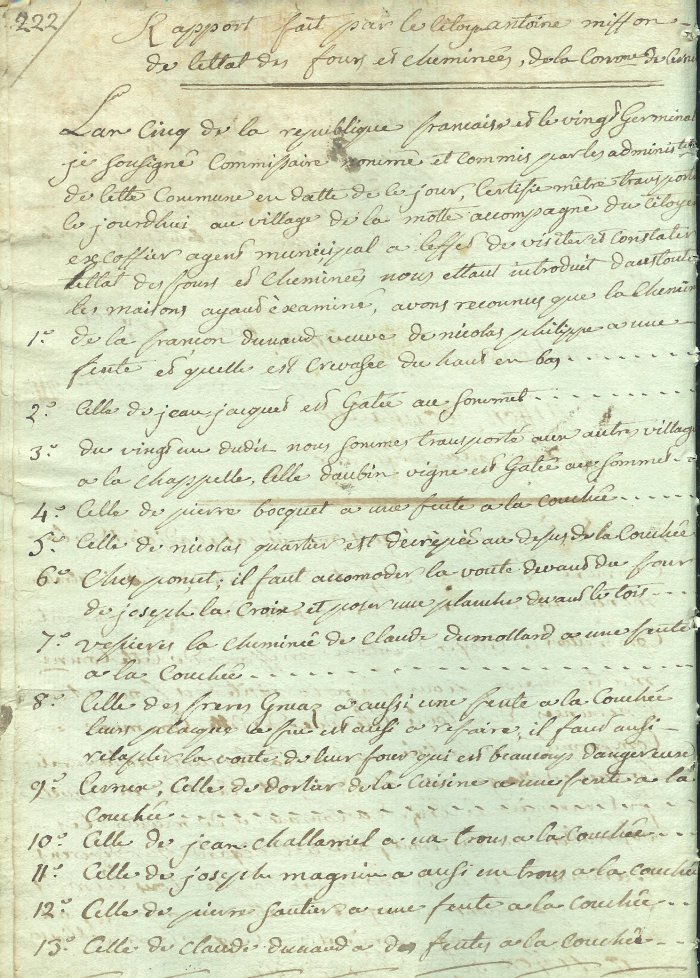 222
Rapport fait par le Citoy antoine miffon
de lettat des fours et cheminées, de la Comune de
Lan Cinq de la republique francaise et le vingt Germinal
je sousigné Commissaire nommé et commis par les administ
de cette Commune en datte de ce jour, Certifie mêtre transporté
ce jourdhui au village de la motte accompagné du Citoyen
excoffier agent municipal a leffet de visiter et constater
lettat des fours et cheminées nous ettant introduit dans toute
les maisons ayant examiné, avons reconnus que la Cheminé
1.° de la francon dunand veuve de nicolas philippe a une
fente et quelle est Crevasée du haut en bas
2.° Celle de jean jacques est Gatée au sommet
3.° du vingt un dudit nous sommes transporté aux autres village
a la chappelle, Celle daubin vigne est Gatée au sommet
4.° Celle de pierre bocquet a une fente a la Couchée
5.° Celle de nicolas quartier est décrepiée au desus de la Couchée
6.° Chez ponnet; il faut accomoder la voute devant du four
de joseph la Croix et poser une planche devant le tois
7.° vesieres la cheminée de Claude dumollard a une fente
a la Couchée
8.° Celle des freres Gruaz a aussi une fente a la Couchée
leur plaque a feu est aussi a refaire, il faut ausi
retapler la voute de leur four qui est beaucoup dangereuse
9.° Cernex, Celle de dorlier de la Cuisine a une fente a la
Couchée
10.° Celle de jean Challamel a un trous a la Couchée
11.° Celle de joseph magnin a ausi un trous a la couchée
12.° Celle de pierre Sautier a une fente a la Couchée
13.° Celle de Claude dunand a des fentes a la Couchée